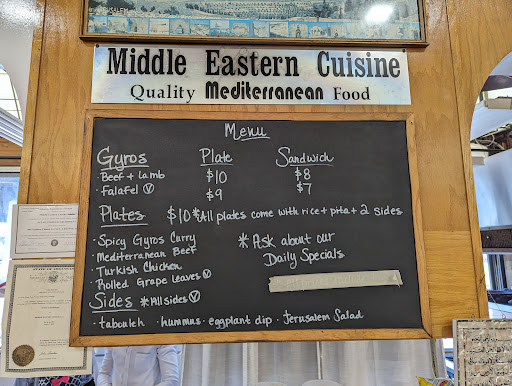 Middle Eastern Cuisine
Quality Mediterranean Food
Menu
Gyros Plate Sandwich
· Beef + Lamb $10 $8
· Falafel Ⓥ $9 $7
Plates $10 *All plates come with rice + pita + 2 sides
· Spicy Gyros Curry
· Mediterranean Beef
· Turkish Chicken
· Rolled Grape Leaves Ⓥ
* Ask about our
Daily Specials
Sides *All sides Ⓥ
· tabouleh · hummus · eggplant dip · Jerusalem Salad